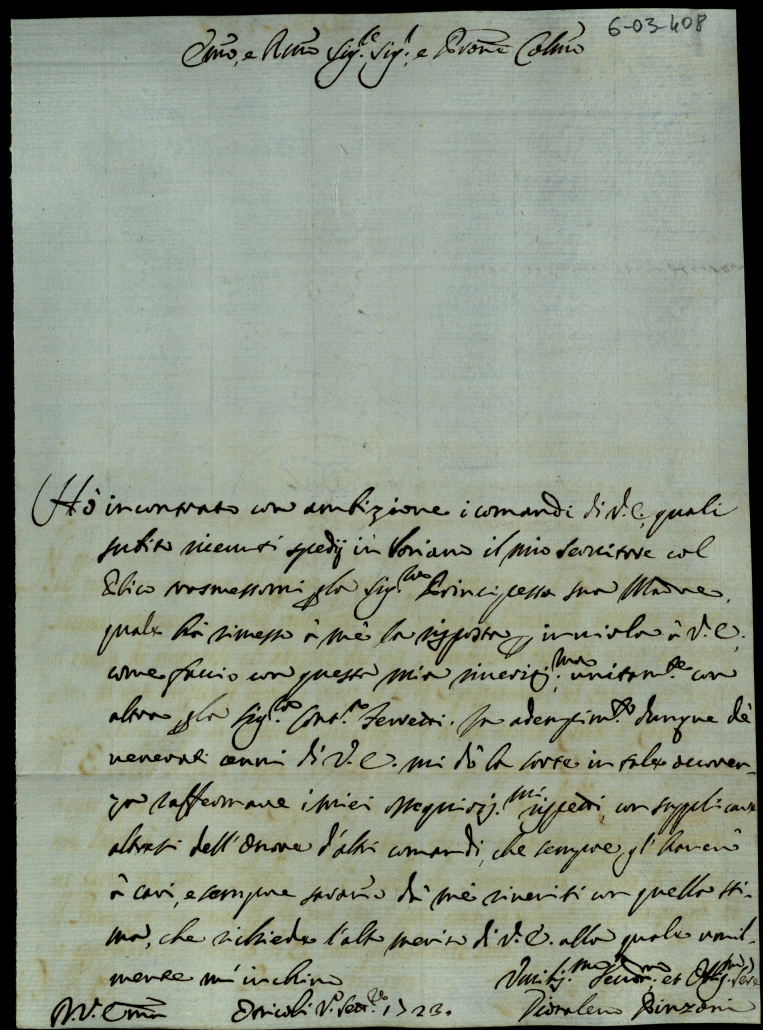 6-03-408
Em̃o, e Rm̃o Sig.re Sig.r, e Pron̄e Col̃mo
Hò incontrato con ambizione i comandi di V. E., quali
subito ricevuti spedij in Soriano il mio Servitore col
Plico trasmessomi p la Sig.ra Principessa sua Madre,
quale hà rimesso à mè la risposta p inviola à V. E.,
come faccio con questa mia riveritis.ma, unitam.te con
altra p la Sig.ra Cont.a Ferretti. In adempim.to dunque dè
venerati cenni di V. E. mi dò la sorte in tale occoren-
za raffermare i miei ossequiosis.mi rispetti, con supplicare
altresi dell'onore d'altri comandi, che sempre gl'haverò
à cari, e sempre saranno dà mè riveriti con quella sti-
ma, che richiede l'alto merito di V. E. alla quale umil-
mente m'inchino
V. Em̃a Otricoli P.o Sett.re 1723.
Umilis.mo Devot.mo et Obblig.mo Ser.e